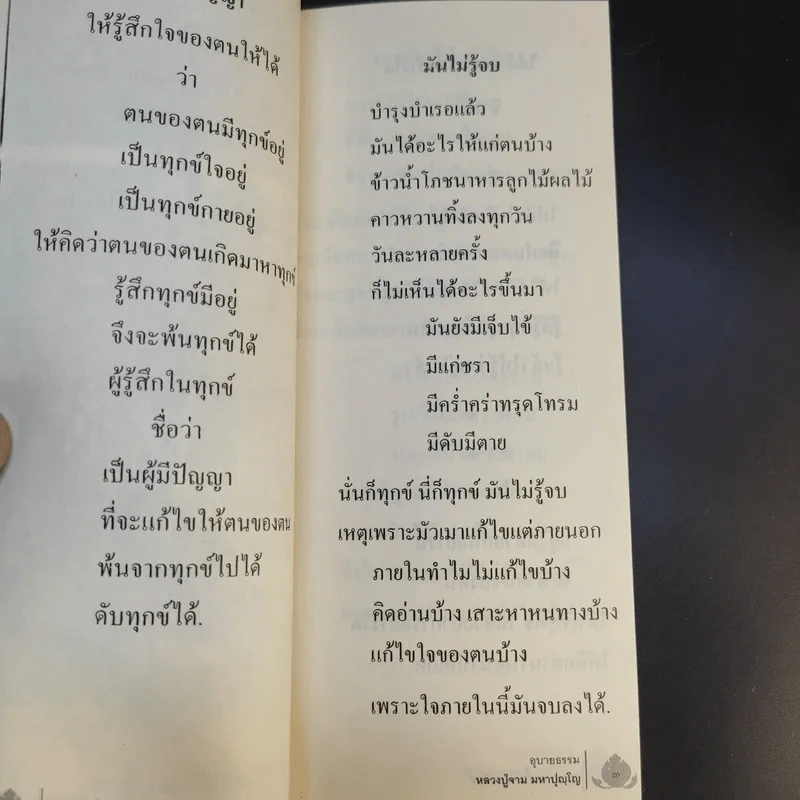 ให้รู้สึกใจของตนให้ได้
ว่า
ตนของตนมีทุกข์อยู่
เป็นทุกข์ใจอยู่
เป็นทุกข์กายอยู่
ให้คิดว่าตนของตนเกิดมาหาทุกข์
รู้สึกทุกข์มีอยู่
จึงจะพ้นทุกข์ได้
ผู้รู้สึกในทุกข์
ชื่อว่า
เป็นผู้มีปัญญา
ที่จะแก้ไขให้ตนของตน
พ้นจากทุกข์ไปได้
ดับทุกข์ได้.
มันไม่รู้จบ
บำรุงบำเรอแล้ว
มันได้อะไรให้แก่ตนบ้าง
ข้าวน้ำโภชนาหารลูกไม้ผลไม้
คาวหวานทิ้งลงทุกวัน
วันละหลายครั้ง
ก็ไม่เห็นได้อะไรขึ้นมา
มันยังมีเจ็บไข้
มีแก่ชรา
มีคร่ำคร่าทรุดโทรม
มีดับมีตาย
นั่นก็ทุกข์ นี่ก็ทุกข์ มันไม่รู้จบ
เหตุเพราะมัวเมาแก้ไขแต่ภายนอก
ภายในทำไมไม่แก้ไขบ้าง
คิดอ่านบ้าง เสาะหาหนทางบ้าง
แก้ไขใจของตนบ้าง
เพราะใจภายในนี้มันจบลงได้.
อุบายธรรม
หลวงปู่จาม มหาปุญฺโญ
๓